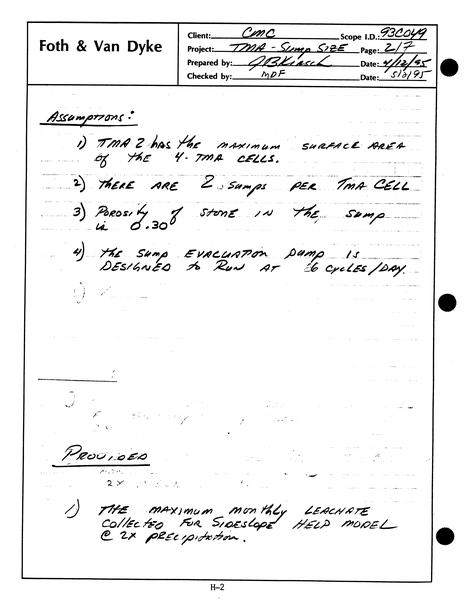 Foth & Van Dyke
Client: CMC Scope I.D.: 93C049
Project: TMA - Sump Size Page: 2/7
Prepared by: JBKirsch Date: 4/12/95
Checked by: MDF Date: 5/2/95
Assumptions:
1) TMA 2 has the maximum surface area
of the 4 - TMA cells.
2) There are 2 sumps per TMA cell
3) Porosity of stone in the sump
is 0.30
4) the sump evaluation pump is
designed to run at 6 cycles/day.
Provided
2x
1) The maximum monthly leachate
collected for sideslope HELP model
@ 2x precipitation.
H-2